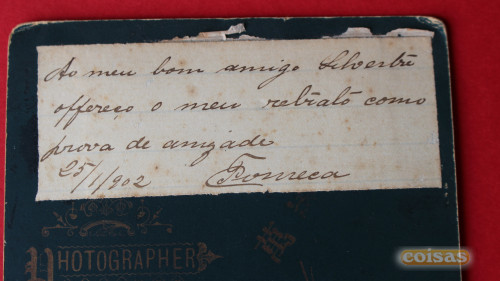 Ao meu bom amigo Silvestre
offereço o meu retrato como
prova de amizade
25/1/902 Fonseca
PHOTOGRAPHER
coisas